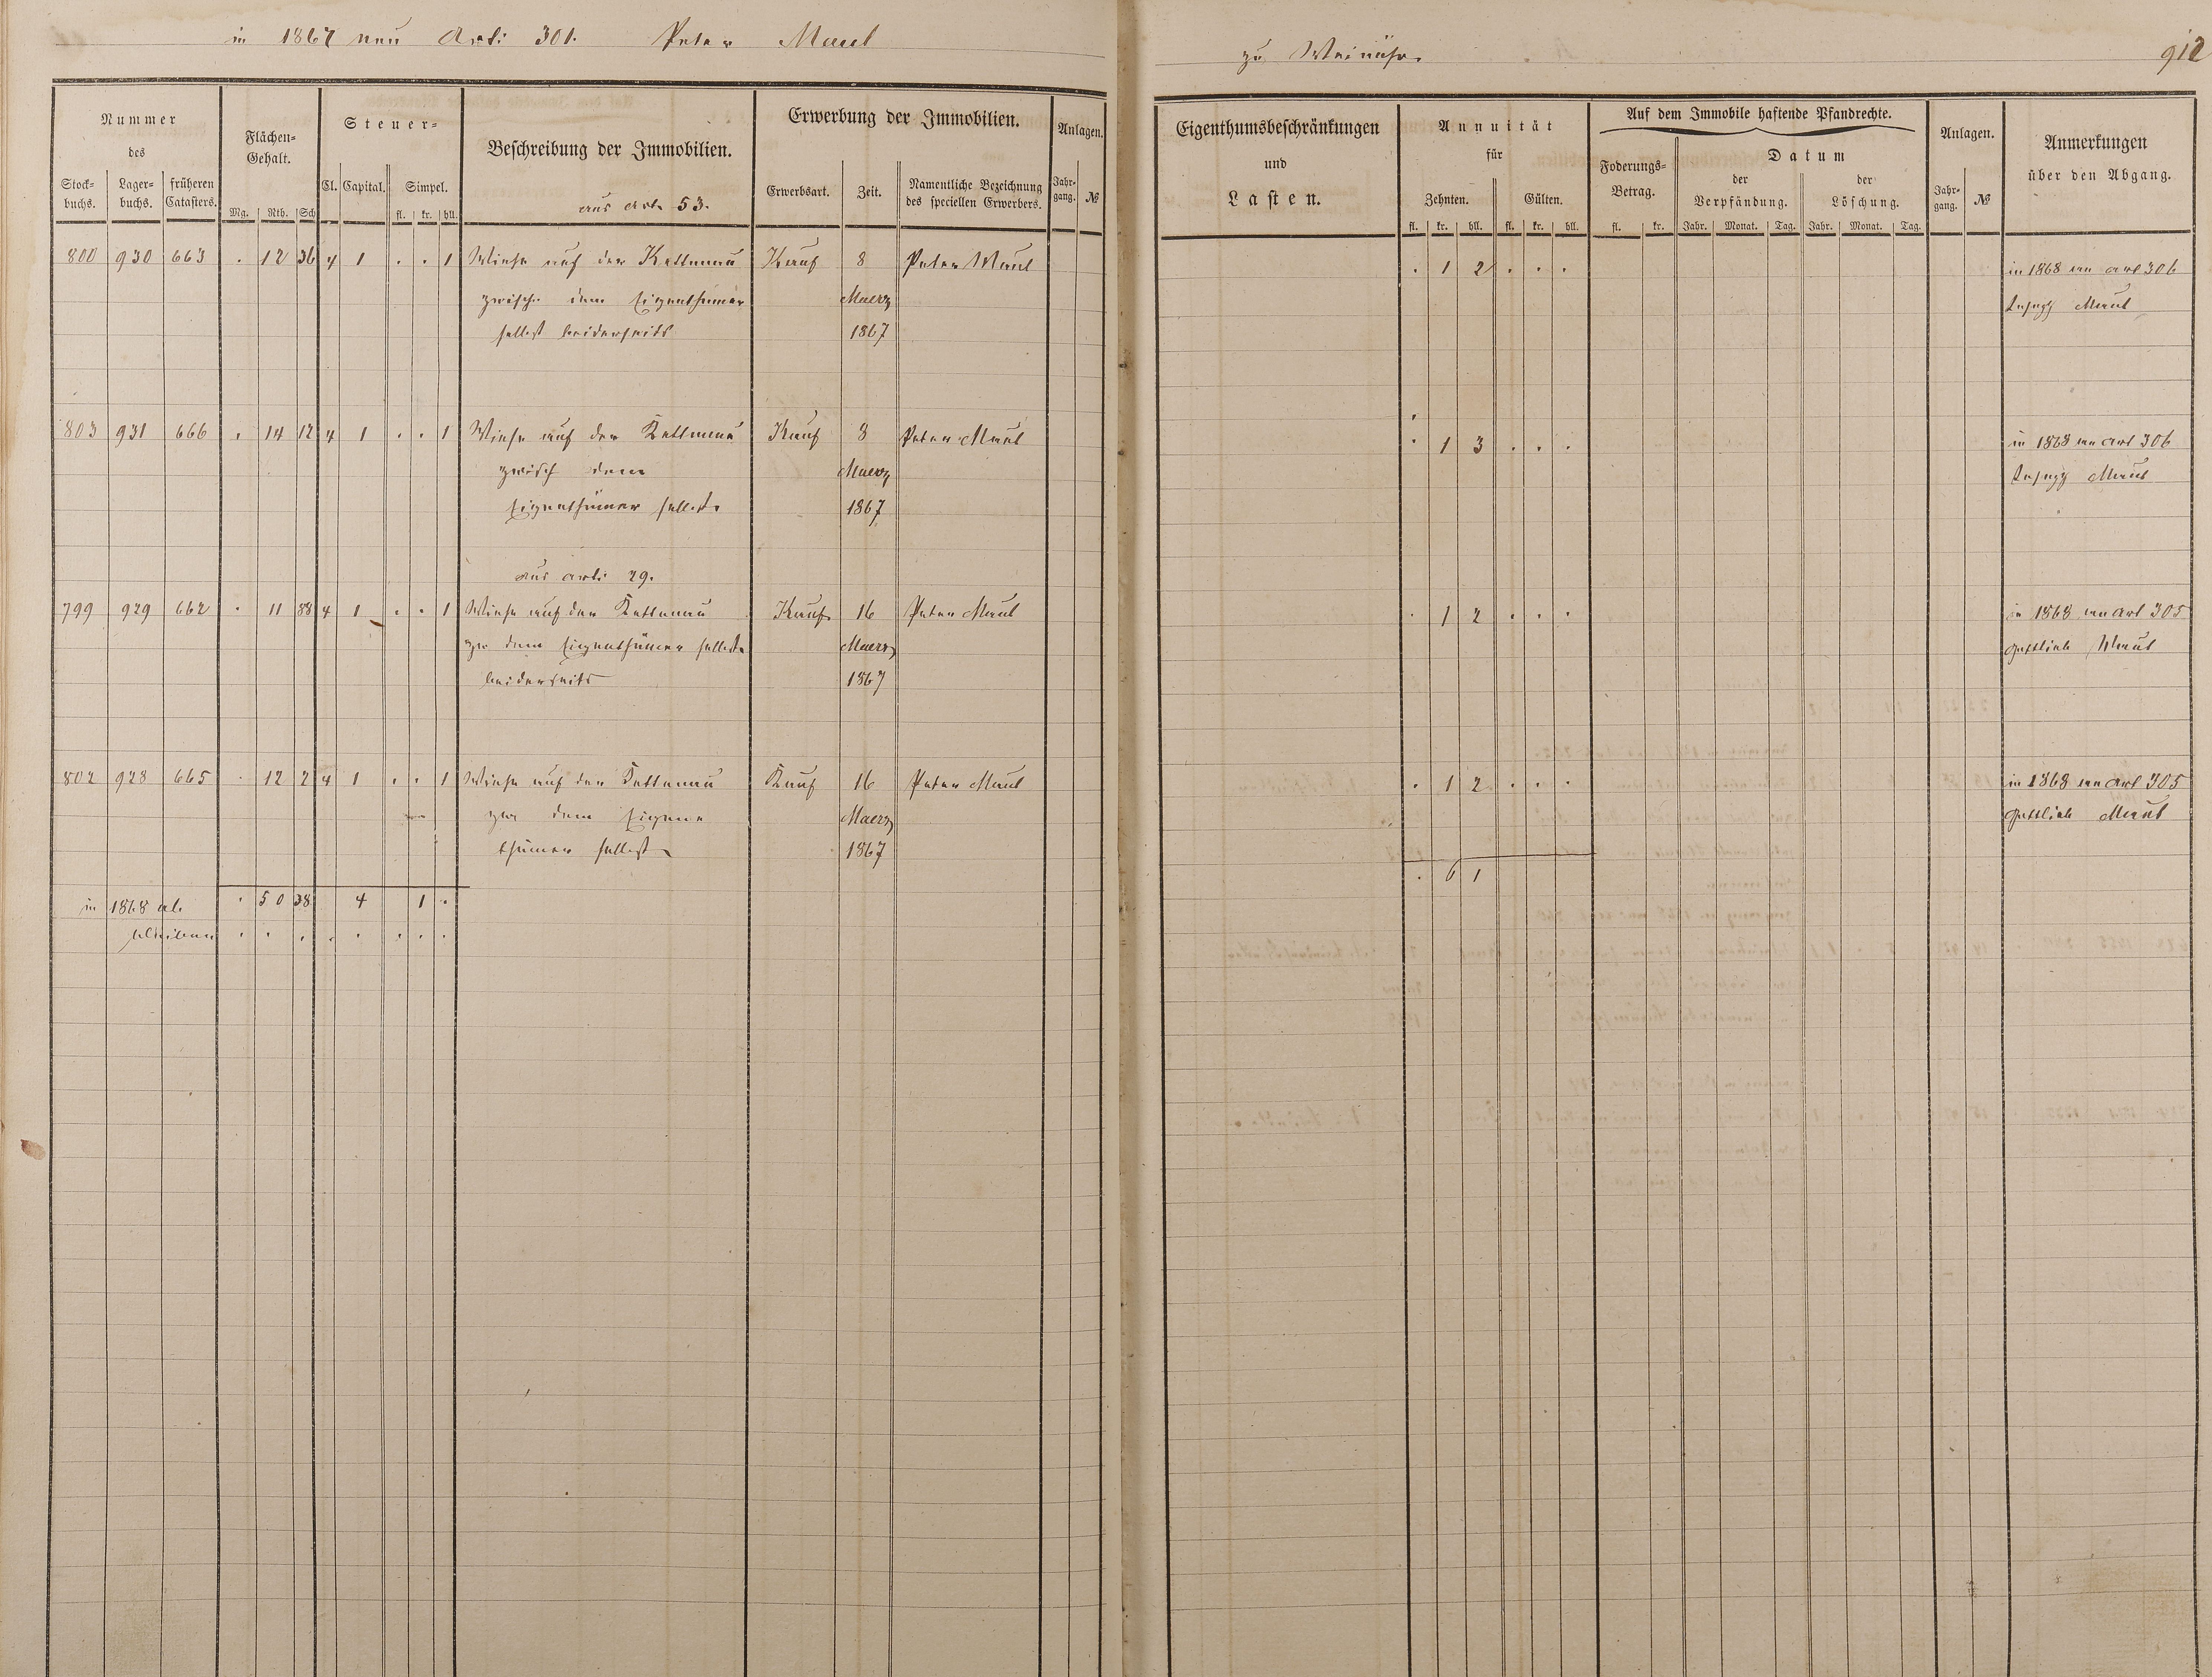 in 1867 neu Arti 301. Peter Maul
zu Weinähr.
912
Nummer des
Stockbuchs. Lagerbuchs. früheren Catasters.
Flächen-Gehalt.
Mg. Rth. Sch
Steuer-
Cl. Capital. Simpel.
fl. kr. hll.
Beschreibung der Immobilien.
aus Art. 53.
Erwerbung der Immobilien.
Erwerbsart. Zeit. Namentliche Bezeichnung des speciellen Erwerbers.
Anlagen.
Jahrgang. №
Eigenthumsbeschränkungen
und
Lasten.
Annuität
für
Zehnten. Gülten.
fl. kr. hll. fl. kr. hll.
Auf dem Immobile haftende Pfandrechte.
Foderungs-Betrag.
fl. kr.
Datum
der Verpfändung. der Löschung.
Jahr. Monat. Tag. Jahr. Monat. Tag.
Anlagen.
Jahrgang. №
Anmerkungen
über den Abgang.
800 930 663 . 12 36 4 1 . . 1 Wiese auf der Kettenau Kauf 8 Peter Maul . 1 2 . . . in 1868 an Art 306
zwisch. dem Eigenthümer Maerz Maul
selbst beiderseits 1867
803 931 666 . 14 12 4 1 . . 1 Wiese auf der Kettenau Kauf 8 Peter Maul . 1 3 . . . in 1868 an Art 306
zwisch dem Maerz Maul
Eigenthümer selbst. 1867
aus Arti 29.
799 929 662 . 11 88 4 1 . . 1 Wiese auf der Kettenau Kauf 16 Peter Maul . 1 2 . . . in 1868 an Art 305
zw dem Eigenthümer selbst Maerz Gottlieb Maul
beiderseits 1867
802 928 665 . 12 2 4 1 . . 1 Wiese auf der Kettenau Kauf 16 Peter Maul . 1 2 . . . in 1868 an Art 305
zw dem Eigen= Maerz Gottlieb Maul
thümer selbst 1867
. 6 1
in 1868 ab. . 50 38 4 1 .
bleiben . . . . . . . .